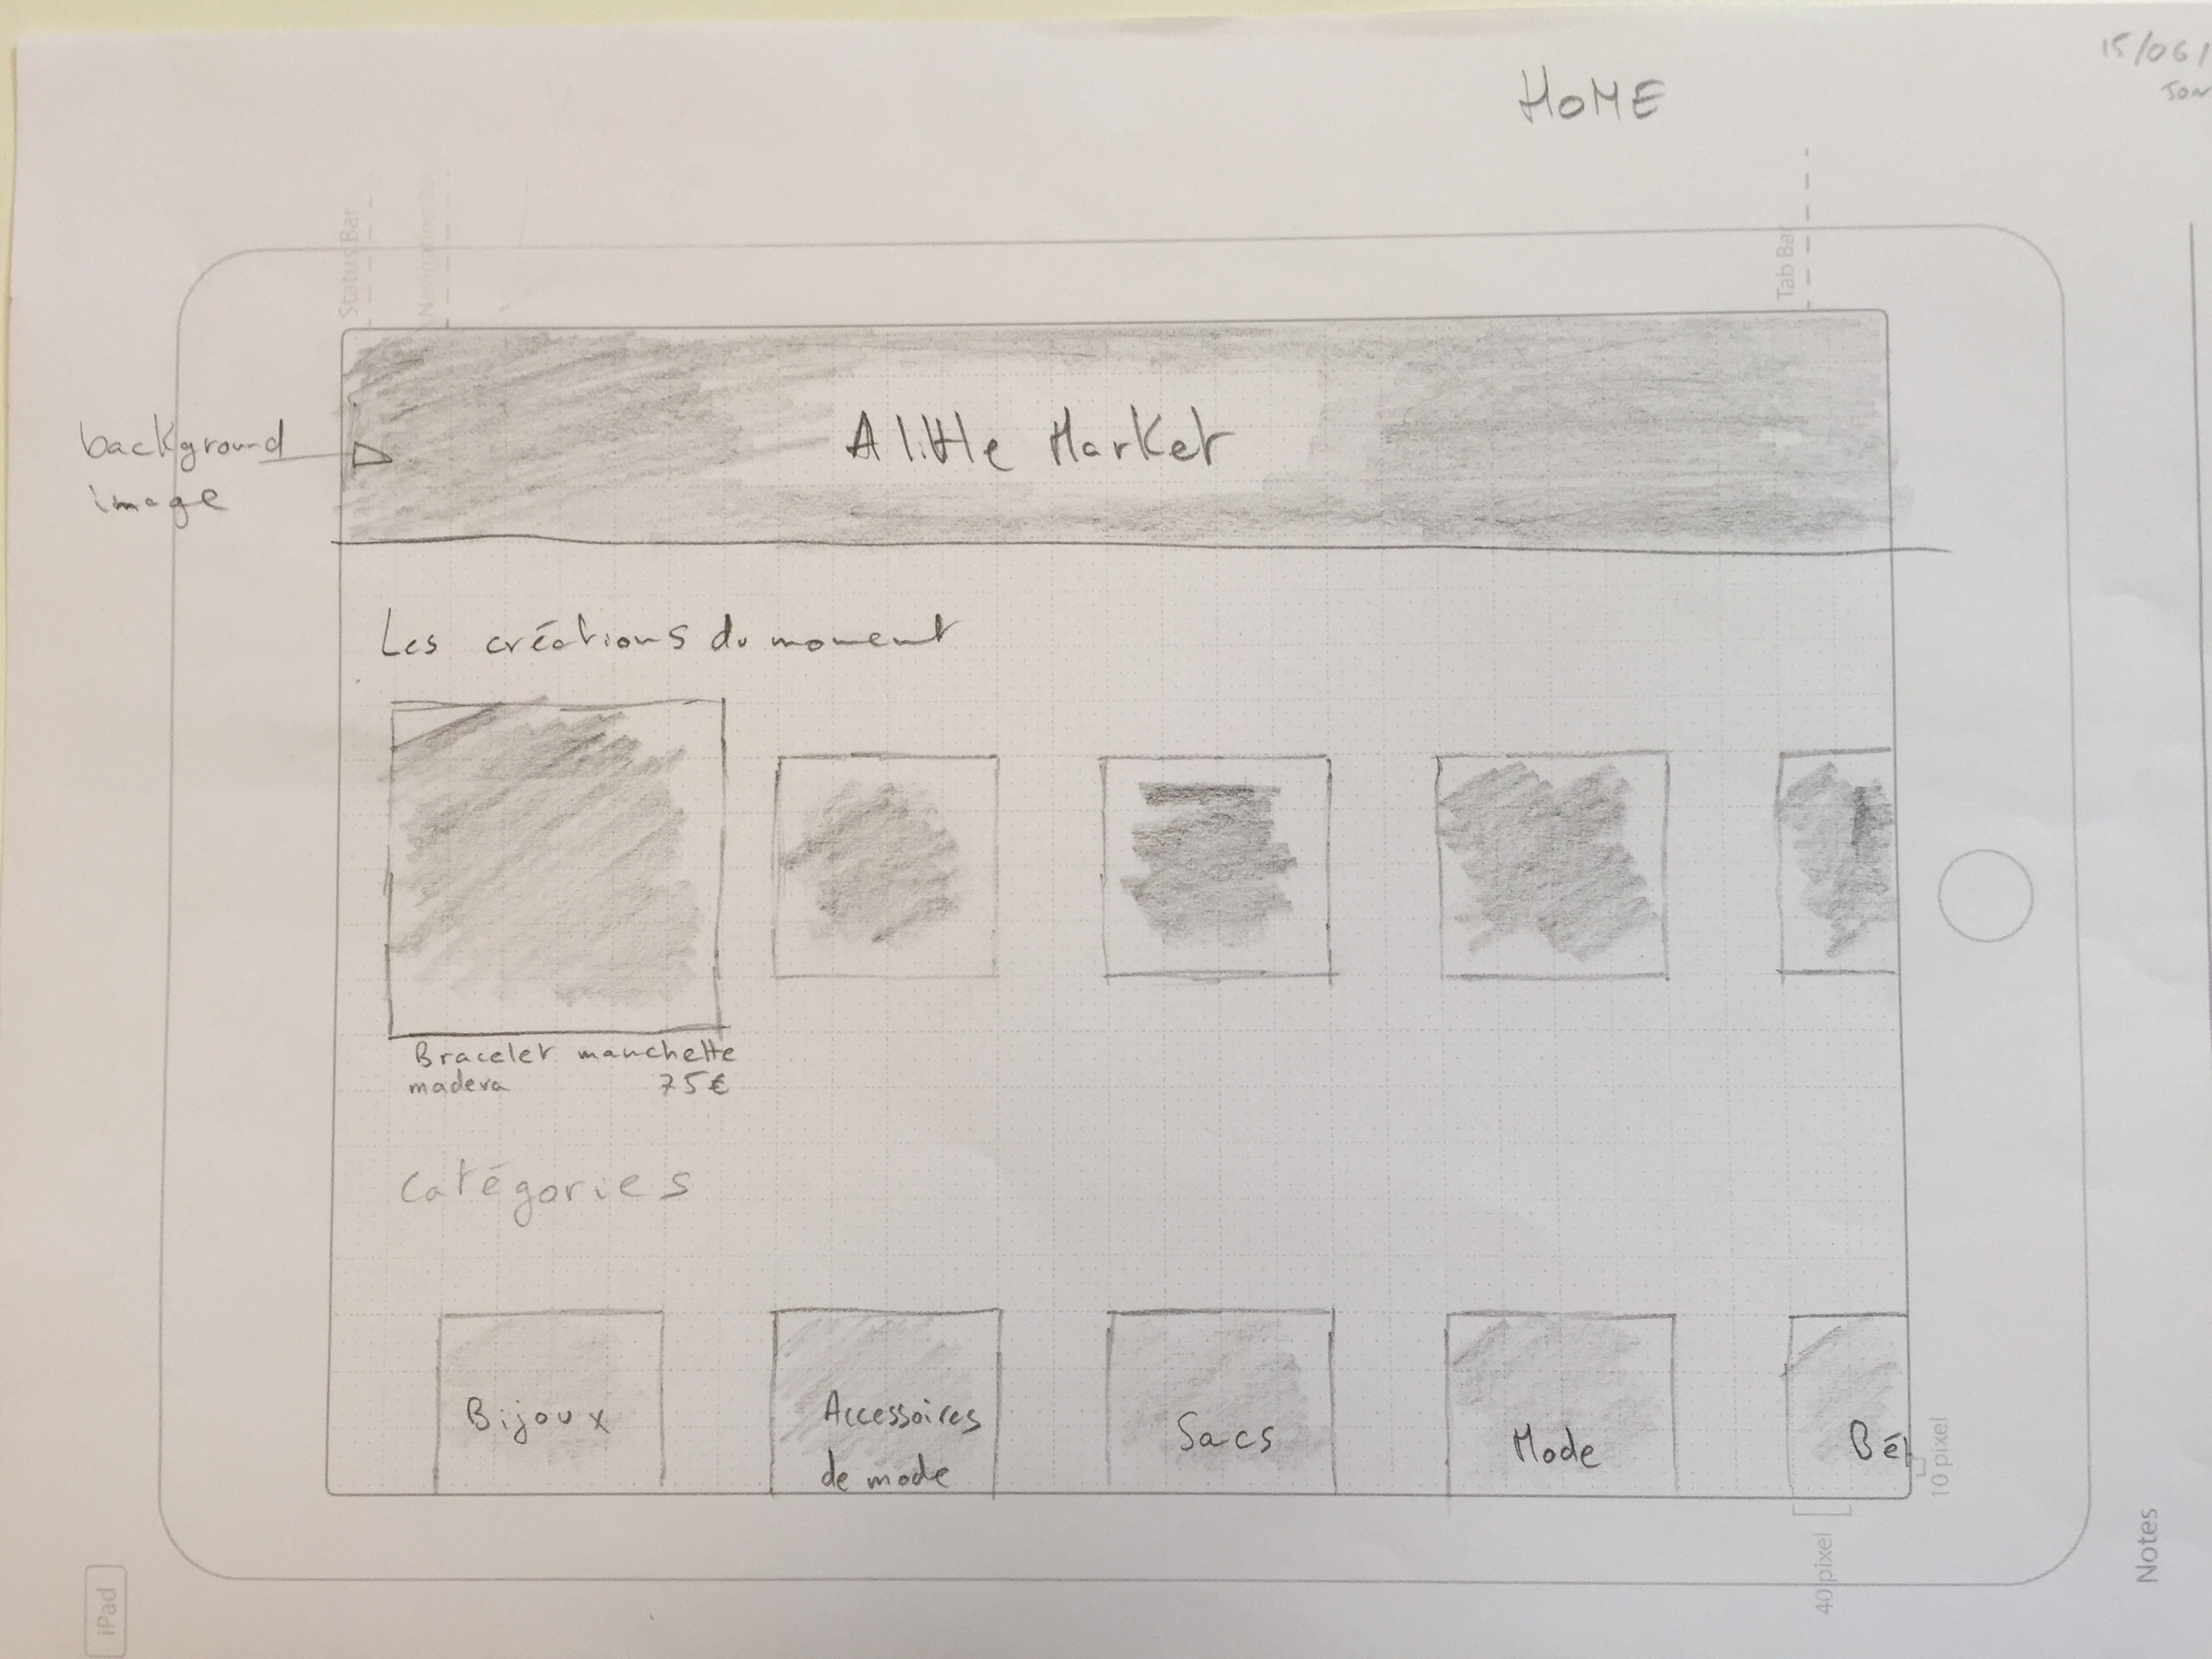 15/06/
HOME
Status Bar
Navigation Bar
Tab Bar
background
image
A little Market
Les créations du moment
Bracelet manchette
madeva 75€
catégories
Bijoux
Accessoires
de mode
Sacs
Mode
Bé
10 pixel
40 pixel
iPad
Notes